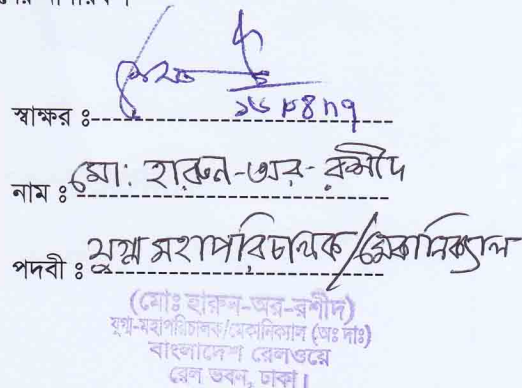 স্বাক্ষর ঃ
নাম ঃ মো: হারুন-অর-রশীদ
পদবী ঃ যুগ্ম মহাপরিচালক/মেকানিক্যাল
(মোঃ হারুন-অর-রশীদ)
যুগ্ম-মহাপরিচালক/মেকানিক্যাল (অঃ দাঃ)
বাংলাদেশ রেলওয়ে
রেল ভবন, ঢাকা।